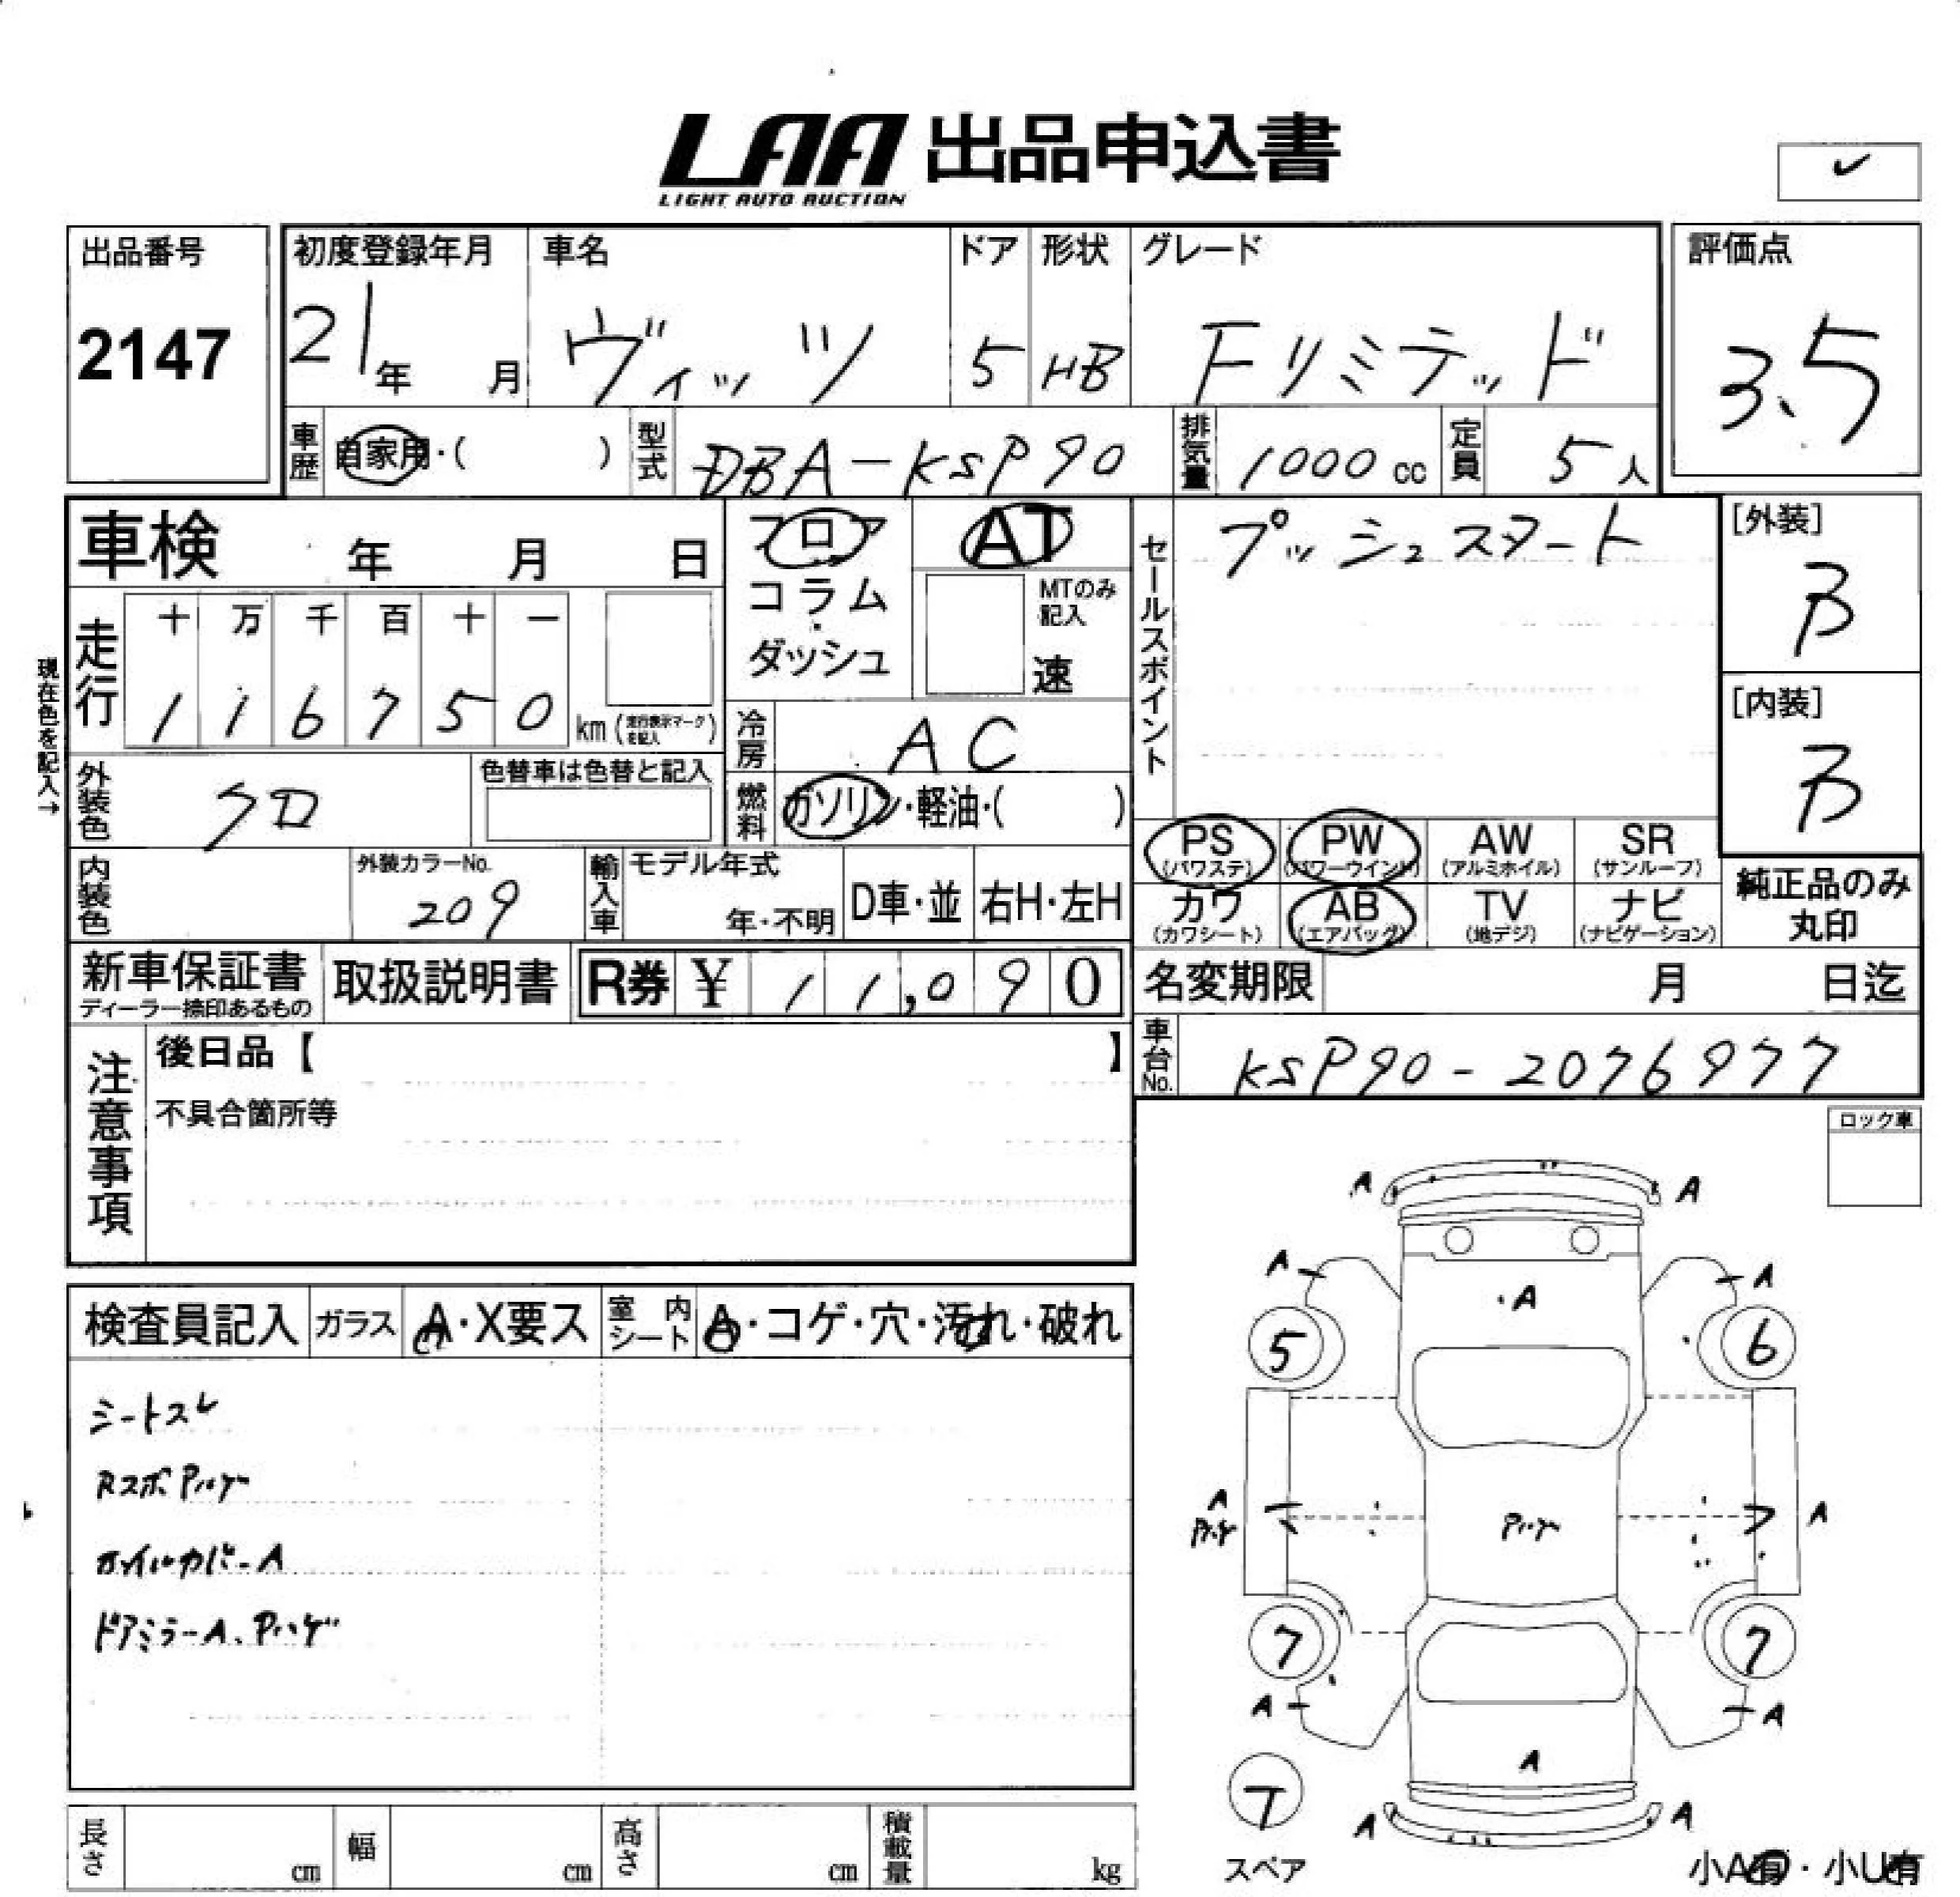 LAA 出品申込書
LIGHT AUTO AUCTION
出品番号
2147
初度登録年月
21年 月
車名
ヴィッツ
ドア
5
形状
HB
グレード
Fリミテッド
評価点
3.5
車歴
自家用・( )
型式
DBA-KSP90
排気量
1000 cc
定員
5人
車検 年 月 日
フロア
コラム
・
ダッシュ
AT
MTのみ
記入
速
セールスポイント
プッシュスタート
[外装]
B
[内装]
B
現在色を記入→
走行
十 万 千 百 十 一
1 1 6 7 5 0 km (走行表示マークを記入)
冷房
AC
外装色
クロ
色替車は色替と記入
燃料
ガソリン・軽油・( )
PS (パワステ)
PW (パワーウインド)
AW (アルミホイル)
SR (サンルーフ)
カワ (カワシート)
AB (エアバッグ)
TV (地デジ)
ナビ (ナビゲーション)
純正品のみ
丸印
内装色
外装カラーNo.
209
輸入車
モデル年式
年・不明
D車・並
右H・左H
新車保証書
ディーラー捺印あるもの
取扱説明書
R券 ¥ 11,090
名変期限 月 日迄
車台No.
KSP90-2076977
注意事項
後日品【 】
不具合箇所等
ロック車
検査員記入
ガラス
A・X要ス
室内シート
A・コゲ・穴・汚れ・破れ
シートスレ
RスポPハゲ
ホイルカバーA
ドアミラーA、Pハゲ
A A
A A
・A
5 6
A
Pハゲ
Pハゲ
A
7 7
A A
A
T
A A
スペア
小A有・小U有
長さ cm
幅 cm
高さ cm
積載量 kg